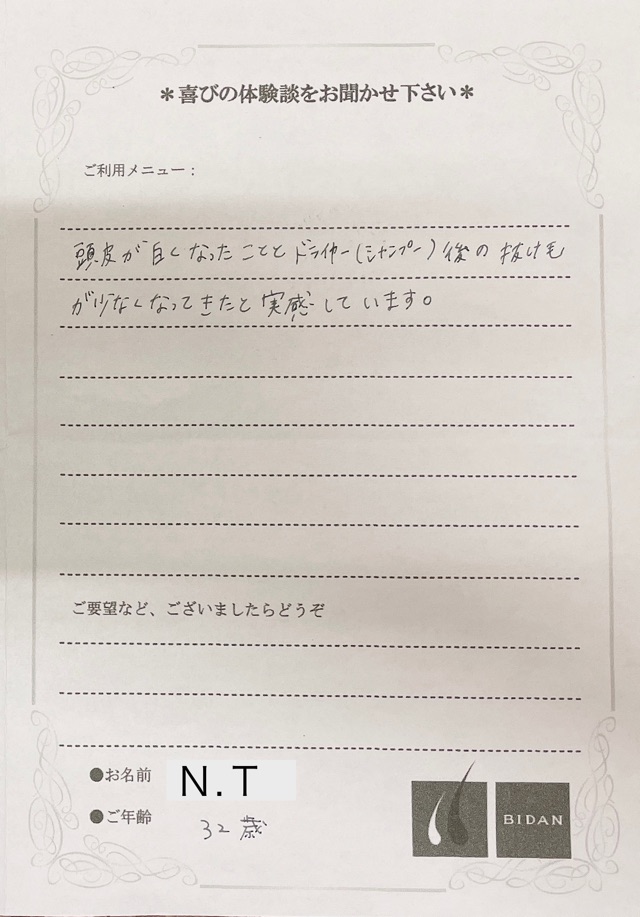 ＊喜びの体験談をお聞かせ下さい＊
ご利用メニュー：
頭皮が白くなったことと ドライヤー(シャンプー)後の抜け毛
が少なくなってきたと実感しています。
ご要望など、ございましたらどうぞ
●お名前 N.T
●ご年齢 32歳
BIDAN